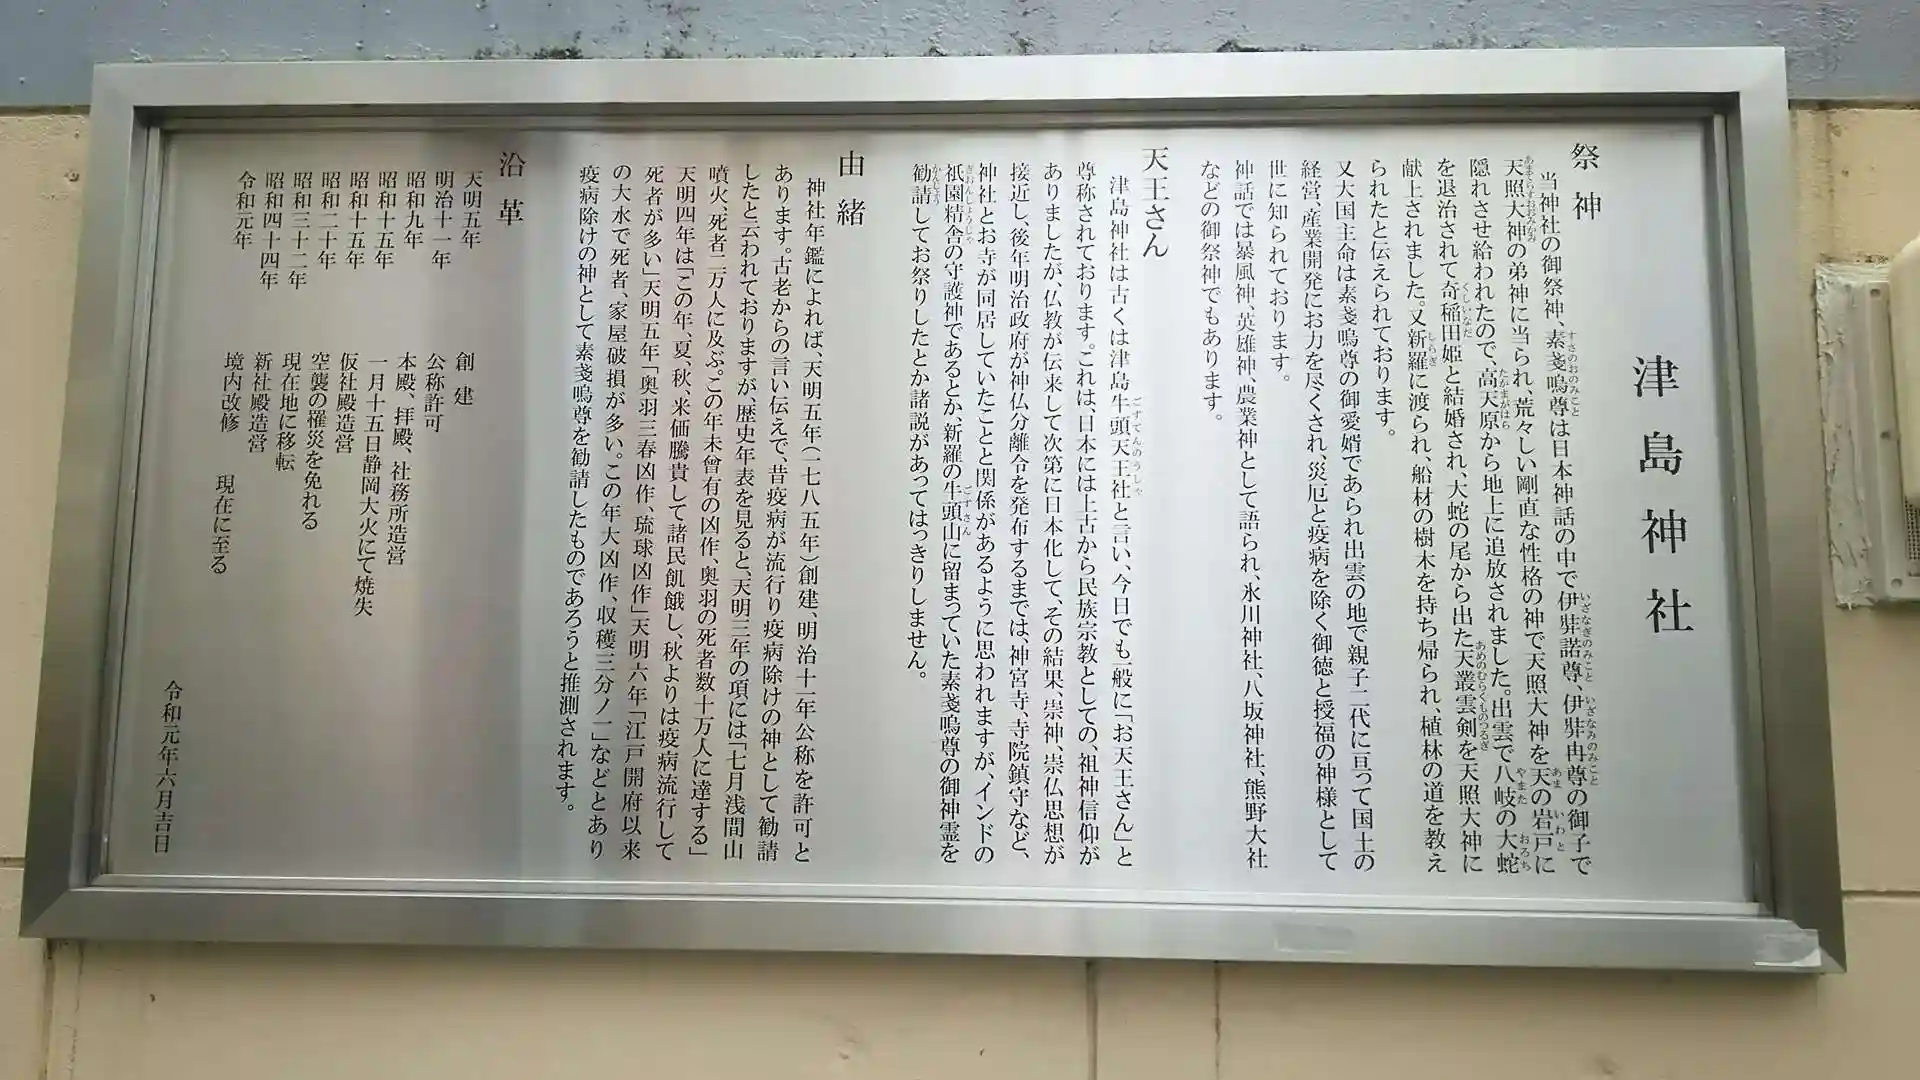 津島神社
祭神
当神社の御祭神、素戔嗚尊は日本神話の中で伊弉諾尊、伊弉冉尊の御子で
天照大神の弟神に当られ、荒々しい剛直な性格の神で天照大神を天の岩戸に
隠れさせ給われたので、高天原から地上に追放されました。出雲で八岐の大蛇
を退治されて奇稲田姫と結婚され、大蛇の尾から出た天叢雲剣を天照大神に
献上されました。又新羅に渡られ、船材の樹木を持ち帰られ、植林の道を教え
られたと伝えられております。
又大国主命は素戔嗚尊の御愛婿であられ出雲の地で親子二代に亘って国土の
経営、産業開発にお力を尽くされ、災厄と疫病を除く御徳と授福の神様として
世に知られております。
神話では暴風神、英雄神、農業神として語られ、氷川神社、八坂神社、熊野大社
などの御祭神でもあります。
天王さん
津島神社は古くは津島牛頭天王社と言い、今日でも一般に「お天王さん」と
尊称されております。これは、日本には上古から民族宗教としての、祖神信仰が
ありましたが、仏教が伝来して次第に日本化して、その結果、崇神、崇仏思想が
接近し、後年明治政府が神仏分離令を発布するまでは、神宮寺、寺院鎮守など、
神社とお寺が同居していたことと関係があるように思われますが、インドの
祇園精舎の守護神であるとか、新羅の牛頭山に留まっていた素戔嗚尊の御神霊を
勧請してお祭りしたとか諸説があってはっきりしません。
由緒
神社年鑑によれば、天明五年(一七八五年)創建、明治十一年公称を許可と
あります。古老からの言い伝えで、昔疫病が流行り疫病除けの神として勧請
したと云われておりますが、歴史年表を見ると、天明三年の項には「七月浅間山
噴火、死者二万人に及ぶ。この年未曾有の凶作、奥羽の死者数十万人に達する」
天明四年は「この年、夏、秋、米価騰貴して諸民飢餓し、秋よりは疫病流行して
死者が多い」天明五年「奥羽三春凶作、琉球凶作」天明六年「江戸開府以来
の大水で死者、家屋破損が多い。この年大凶作、収穫三分ノ一」などとあり
疫病除けの神として素戔嗚尊を勧請したものであろうと推測されます。
沿革
天明五年 創建
明治十一年 公称許可
昭和九年 本殿、拝殿、社務所造営
昭和十五年 一月十五日静岡大火にて焼失
昭和十五年 仮社殿造営
昭和二十年 空襲の罹災を免れる
昭和三十二年 現在地に移転
昭和四十四年 新社殿造営
令和元年 境内改修 現在に至る
令和元年六月吉日
すさのおのみこと
いざなぎのみこと
いざなみのみこと
あまてらすおおみかみ
あま いわと
たかまがはら
やまた おろち
くしいなだ
あめのむらくものつるぎ
しらぎ
ごずてんのうしゃ
ぎおんしょうじゃ
ごずさん
かんじょう